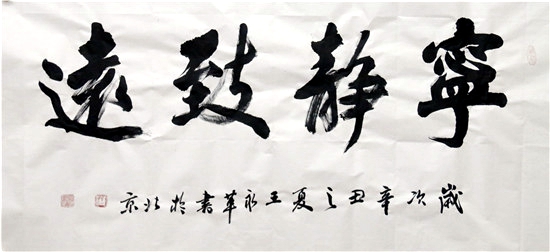 寧静致遠
歲次辛丑之夏王永革書於北京